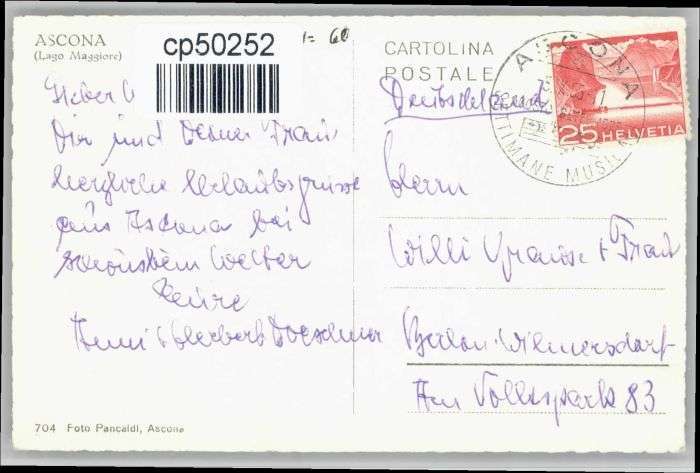 ASCONA
(Lago Maggiore)
cp50252
1= 60
CARTOLINA
POSTALE
Deutschland
ASCONA
SETTIMANE MUSICALI
25 HELVETIA
Dir und Deiner Frau
herzliche Urlaubsgrüsse
aus Ascona bei
schönstem Wetter
Herrn
Willi Krause + Frau
Berlin-Wilmersdorf
Am Volkspark 83
704 Foto Pancaldi, Ascona